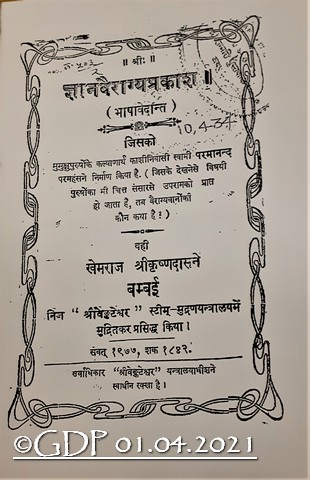 ॥ श्रीः ॥
ज्ञानवैराग्यप्रकाश ॥
(भाषावेदान्त)
10,434
जिसको
मुमुक्षुपुरुषोंके कल्याणार्थ काशीनिवासी स्वामी परमानन्द
परमहंसने निर्माण किया है. (जिसके देखनेसे विषयी
पुरुषोंका भी चित्त संसारसे उपरामको प्राप्त
हो जाता है, तब वैराग्यवानोंकी
कौन कथा है !)
वही
खेमराज श्रीकृष्णदासने
बम्बई
निज “ श्रीवेङ्कटेश्वर ” स्टीम्-मुद्रणयन्त्रालयमें
मुद्रितकर प्रसिद्ध किया ।
संवत् १९७७, शक १८४२.
सर्वाधिकार “श्रीवेङ्कटेश्वर” यन्त्रालयाधीशने
स्वाधीन रक्खा है ।
©GDP 01.04.2021